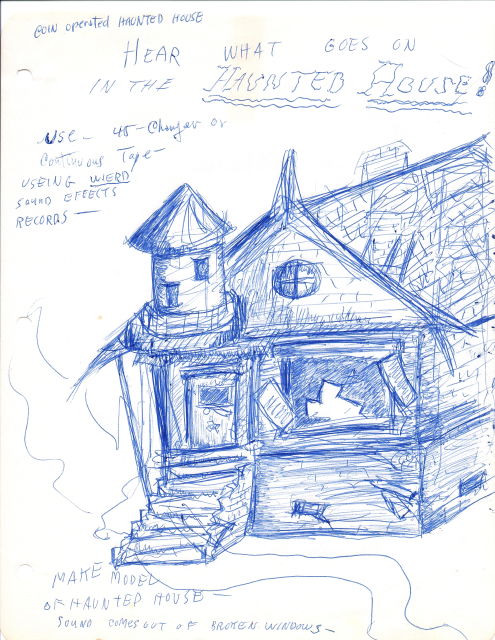 COIN operated HAUNTED HOUSE
HEAR WHAT GOES ON
IN THE HAUNTED HOUSE!
USE - 45 - Changer or
Continuous Tape -
USEING WIERD
SOUND EFFECTS
RECORDS -
MAKE MODEL
OF HAUNTED HOUSE -
SOUND COMES OUT OF BROKEN WINDOWS -